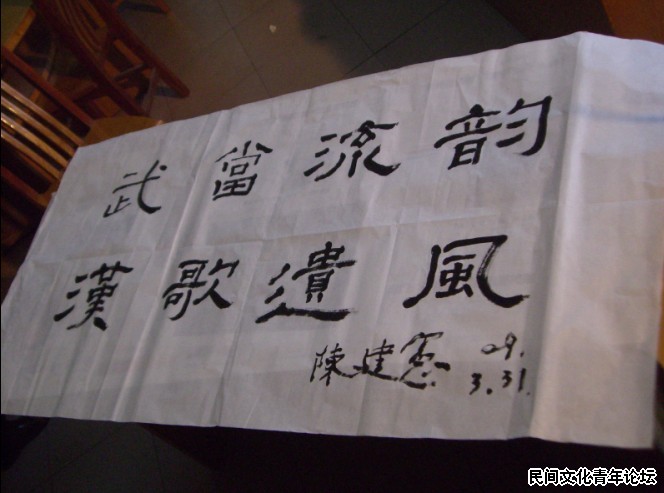 武當流韵
漢歌遺風
陳建憲 09.
3.31.
民间文化青年论坛